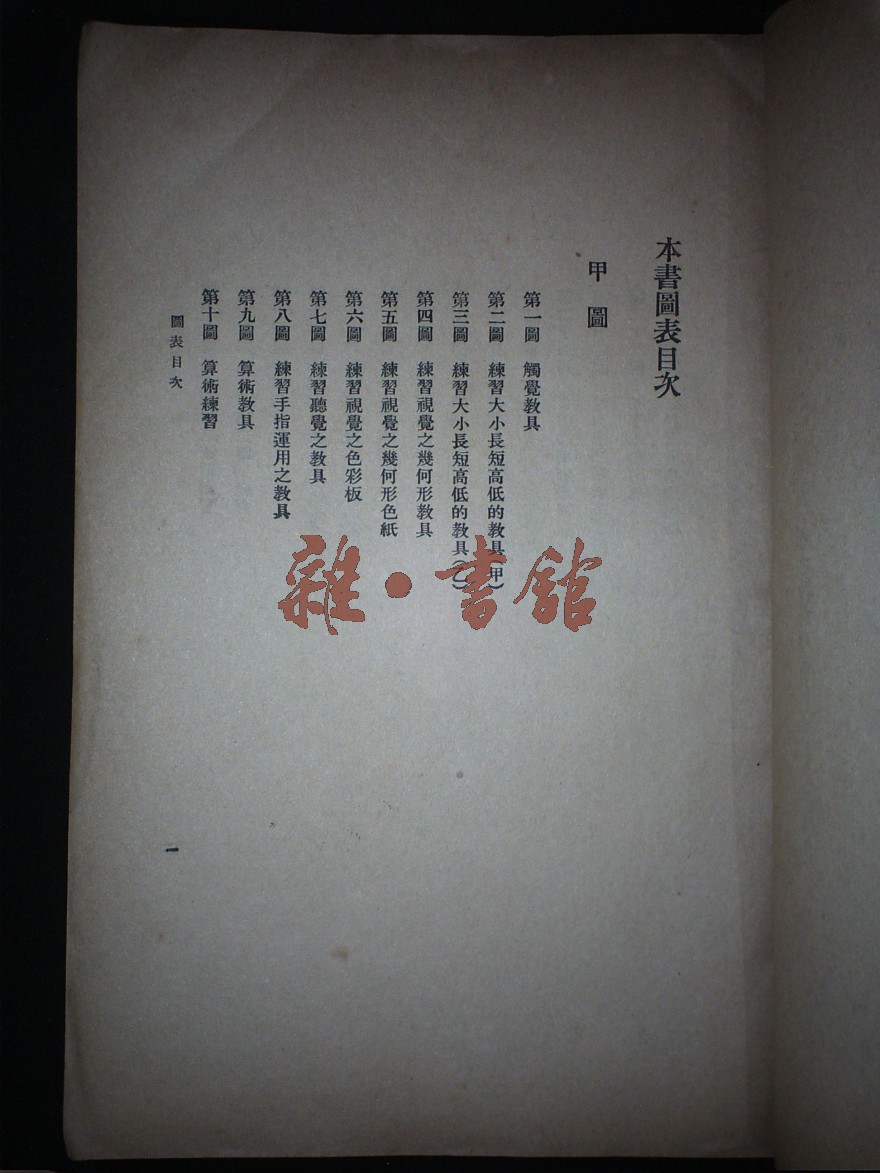 本書圖表目次
甲圖
第一圖 觸覺教具
第二圖 練習大小長短高低的教具(甲)
第三圖 練習大小長短高低的教具(乙)
第四圖 練習視覺之幾何形教具
第五圖 練習視覺之幾何形色紙
第六圖 練習視覺之色彩板
第七圖 練習聽覺之教具
第八圖 練習手指運用之教具
第九圖 算術教具
第十圖 算術練習
圖表目次
一
雜·書館